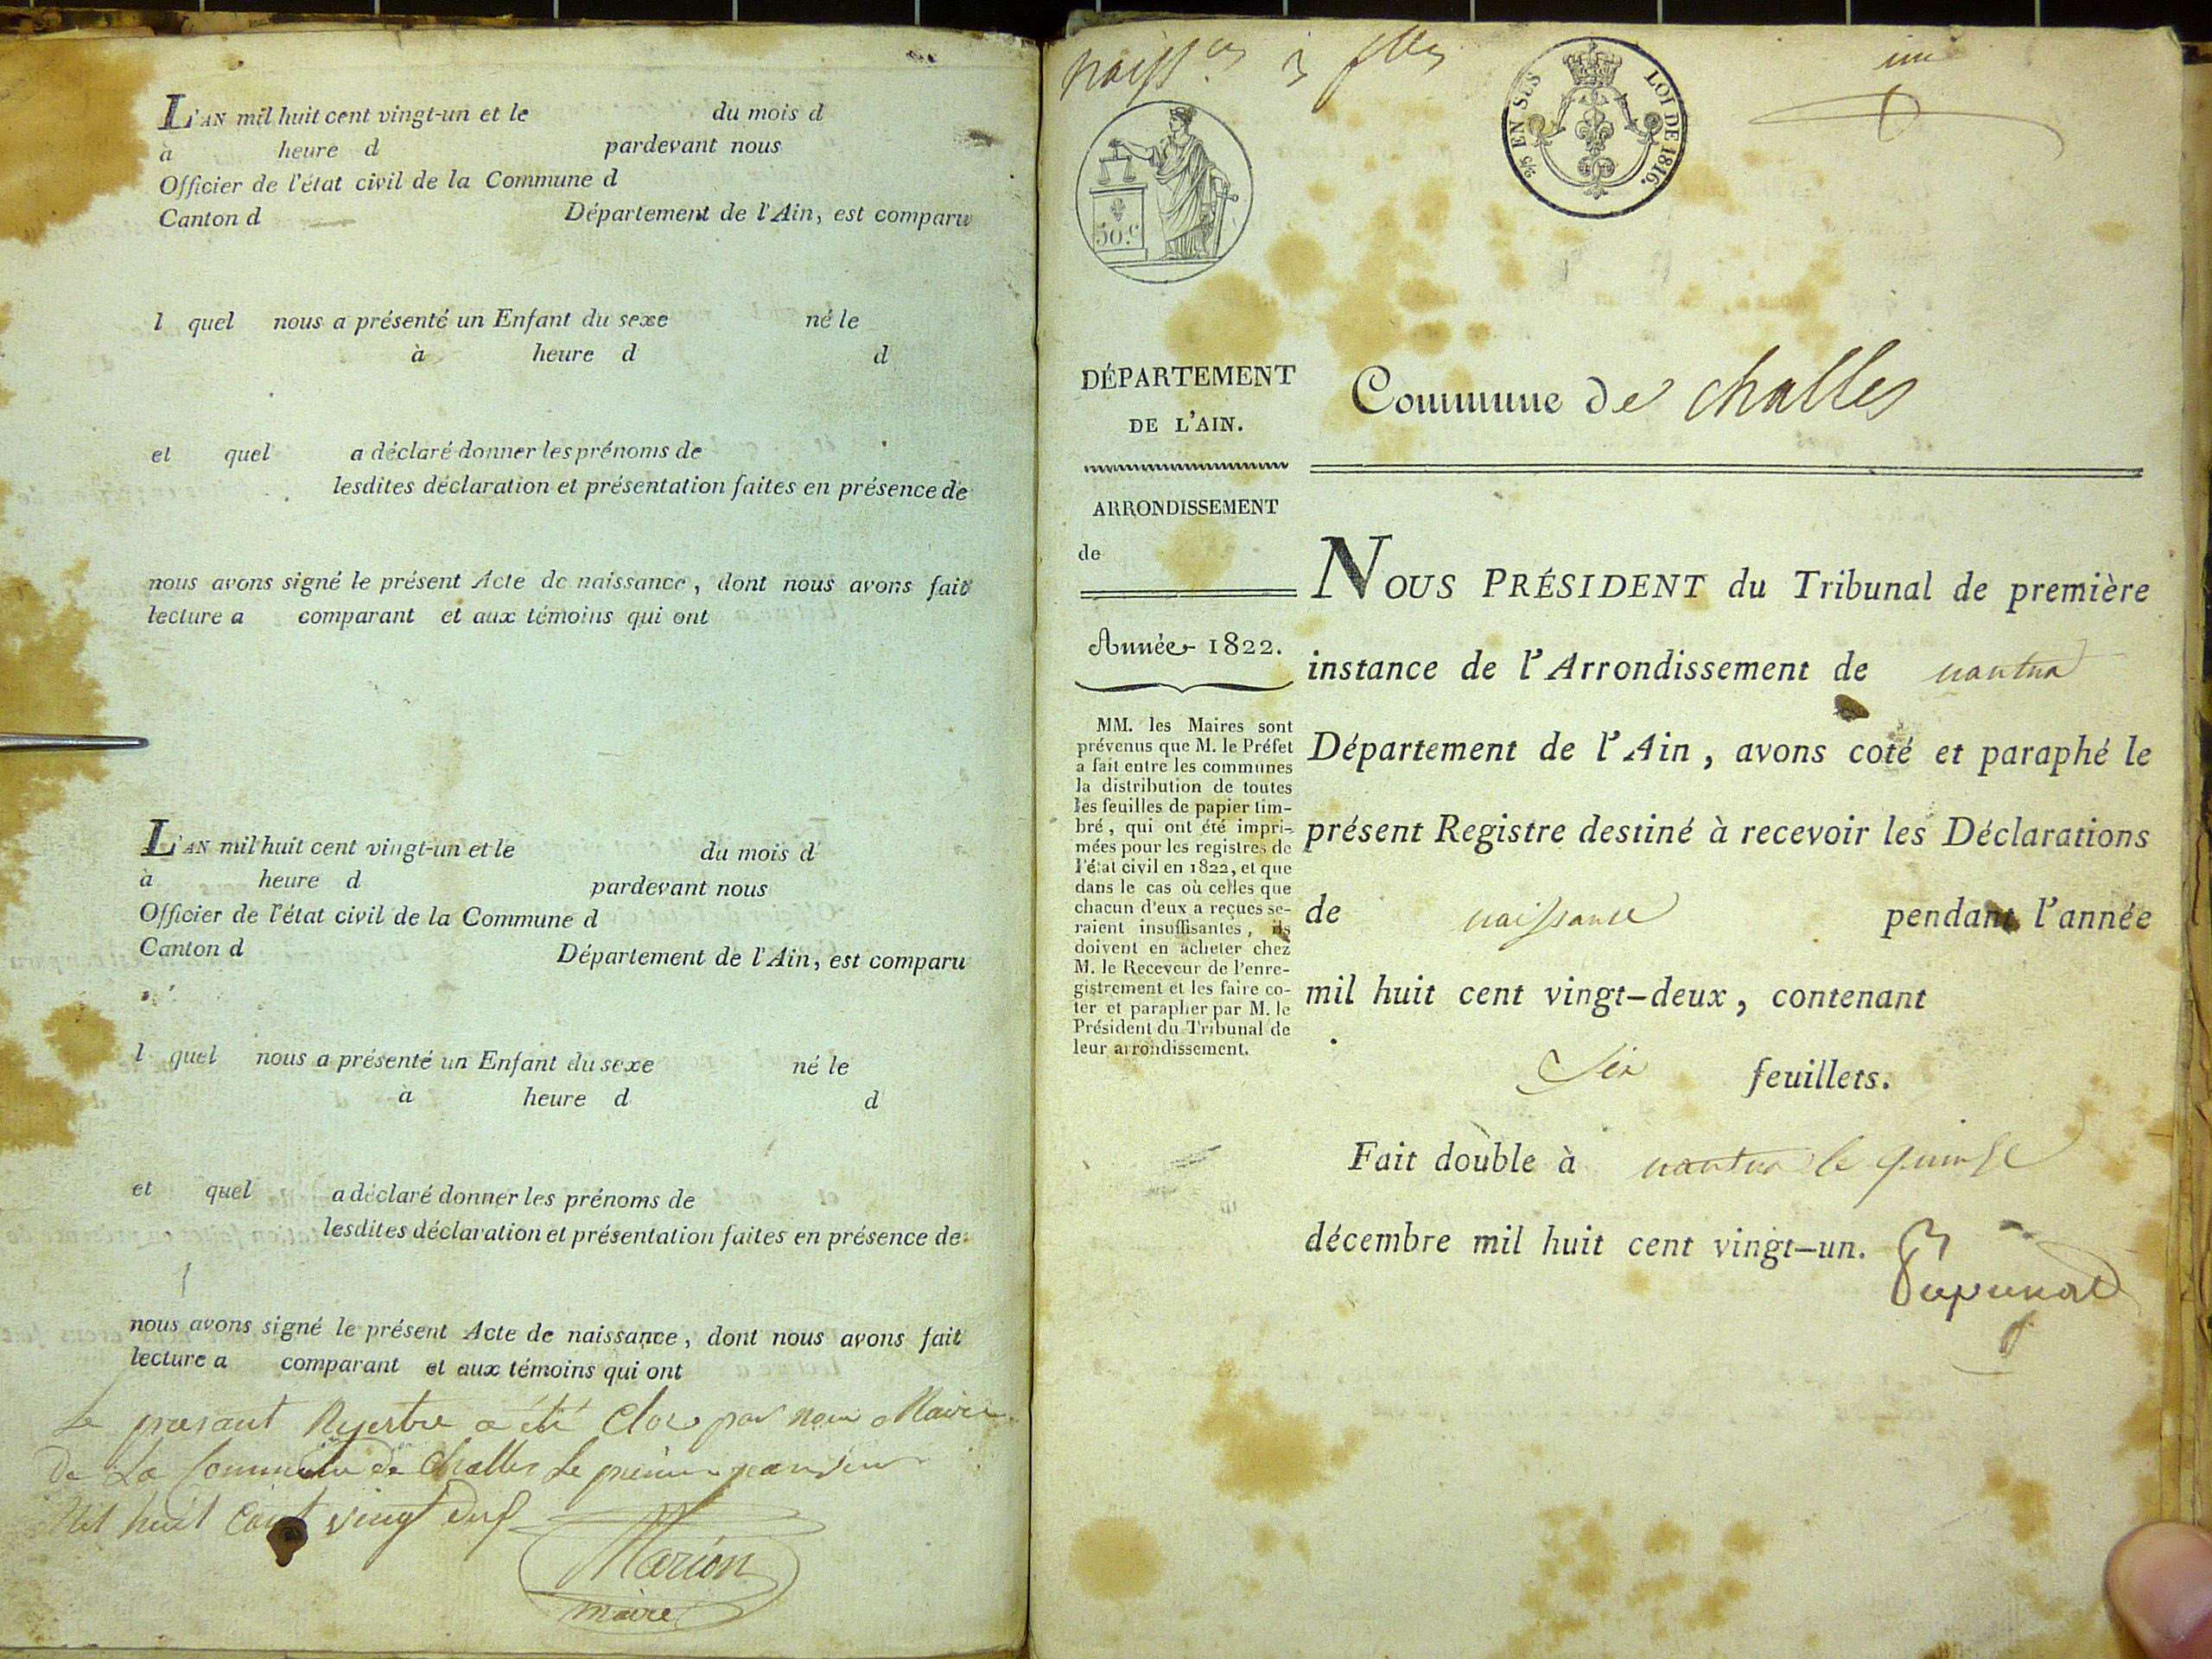 L'AN mil huit cent vingt-un et le du mois d
à heure d pardevant nous
Officier de l'état civil de la Commune d
Canton d Département de l'Ain, est comparu
l quel nous a présenté un Enfant du sexe né le
à heure d d
et quel a déclaré donner les prénoms de
lesdites déclaration et présentation faites en présence de
nous avons signé le présent Acte de naissance, dont nous avons fait
lecture a comparant et aux témoins qui ont
L'AN mil huit cent vingt-un et le du mois d
à heure d pardevant nous
Officier de l'état civil de la Commune d
Canton d Département de l'Ain, est comparu
l quel nous a présenté un Enfant du sexe né le
à heure d d
et quel a déclaré donner les prénoms de
lesdites déclaration et présentation faites en présence de
nous avons signé le présent Acte de naissance, dont nous avons fait
lecture a comparant et aux témoins qui ont
Le a été Clos par nous Maire
De La Commune De Challes Le
Mil huit vingt
Marion
maire
EN SUS LOI DE 1816.
50.c
DÉPARTEMENT
DE L'AIN.
Commune de challes
ARRONDISSEMENT
de
Année 1822.
MM. les Maires sont
prévenus que M. le Préfet
a fait entre les communes
la distribution de toutes
les feuilles de papier tim-
bré, qui ont été impri-
mées pour les registres de
l'état civil en 1822, et que
dans le cas où celles que
chacun d'eux a reçues se-
raient insuffisantes, ils
doivent en acheter chez
M. le Receveur de l'enre-
gistrement et les faire co-
ter et parapher par M. le
Président du Tribunal de
leur arrondissement.
NOUS PRÉSIDENT du Tribunal de première
instance de l'Arrondissement de nantua
Département de l'Ain, avons coté et paraphé le
présent Registre destiné à recevoir les Déclarations
de naissance pendant l'année
mil huit cent vingt-deux, contenant
Six feuillets.
Fait double à nantua le quinze
décembre mil huit cent vingt-un.